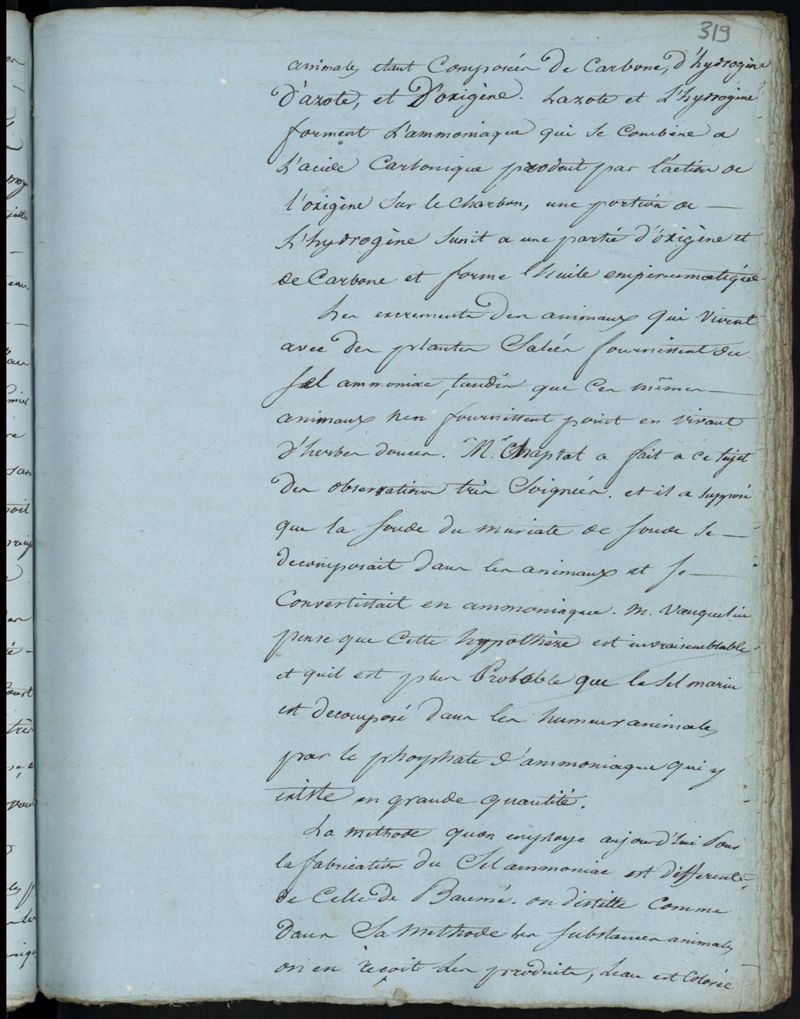 319
animales etant Composées de Carbone, d'hydrogène
D'azote, et D'oxigène. Lazote et L'hydrogène
forment L'ammoniaque qui se combine a
L'acide Carbonique produit par l'action de
l'oxigène sur le charbon, une portion de —
L'hydrogène sunit a une partie d'oxigène et
de Carbone et forme l'huile empireumatique
Les excrements des animaux qui vivent
avec des plantes Salées fournissent du
sel ammoniac, tandis que ces mêmes —
animaux n'en fournissent point en vivant
d'herbes douces. Mr. Chaptal a fait a ce sujet
des observations très Soignées. et il a supposé
que la soude du muriate de soude se —
decomposait dans les animaux et se —
Convertissait en ammoniaque. M. Vauquelin
pense que Cette hypothèse est invraisemblable
et quil est plus Probable que le Sel marin
est decomposé dans les humeurs animales,
par le phosphate d'ammoniaque qui y
existe en grande quantité.
La methode quon employe aujourd'hui Pour
la fabrication du Sel ammoniac est differente
de Celle de Baumé. on distille comme
Dans Sa methode les substances animales,
on en reçoit les produits, leau est Colorée